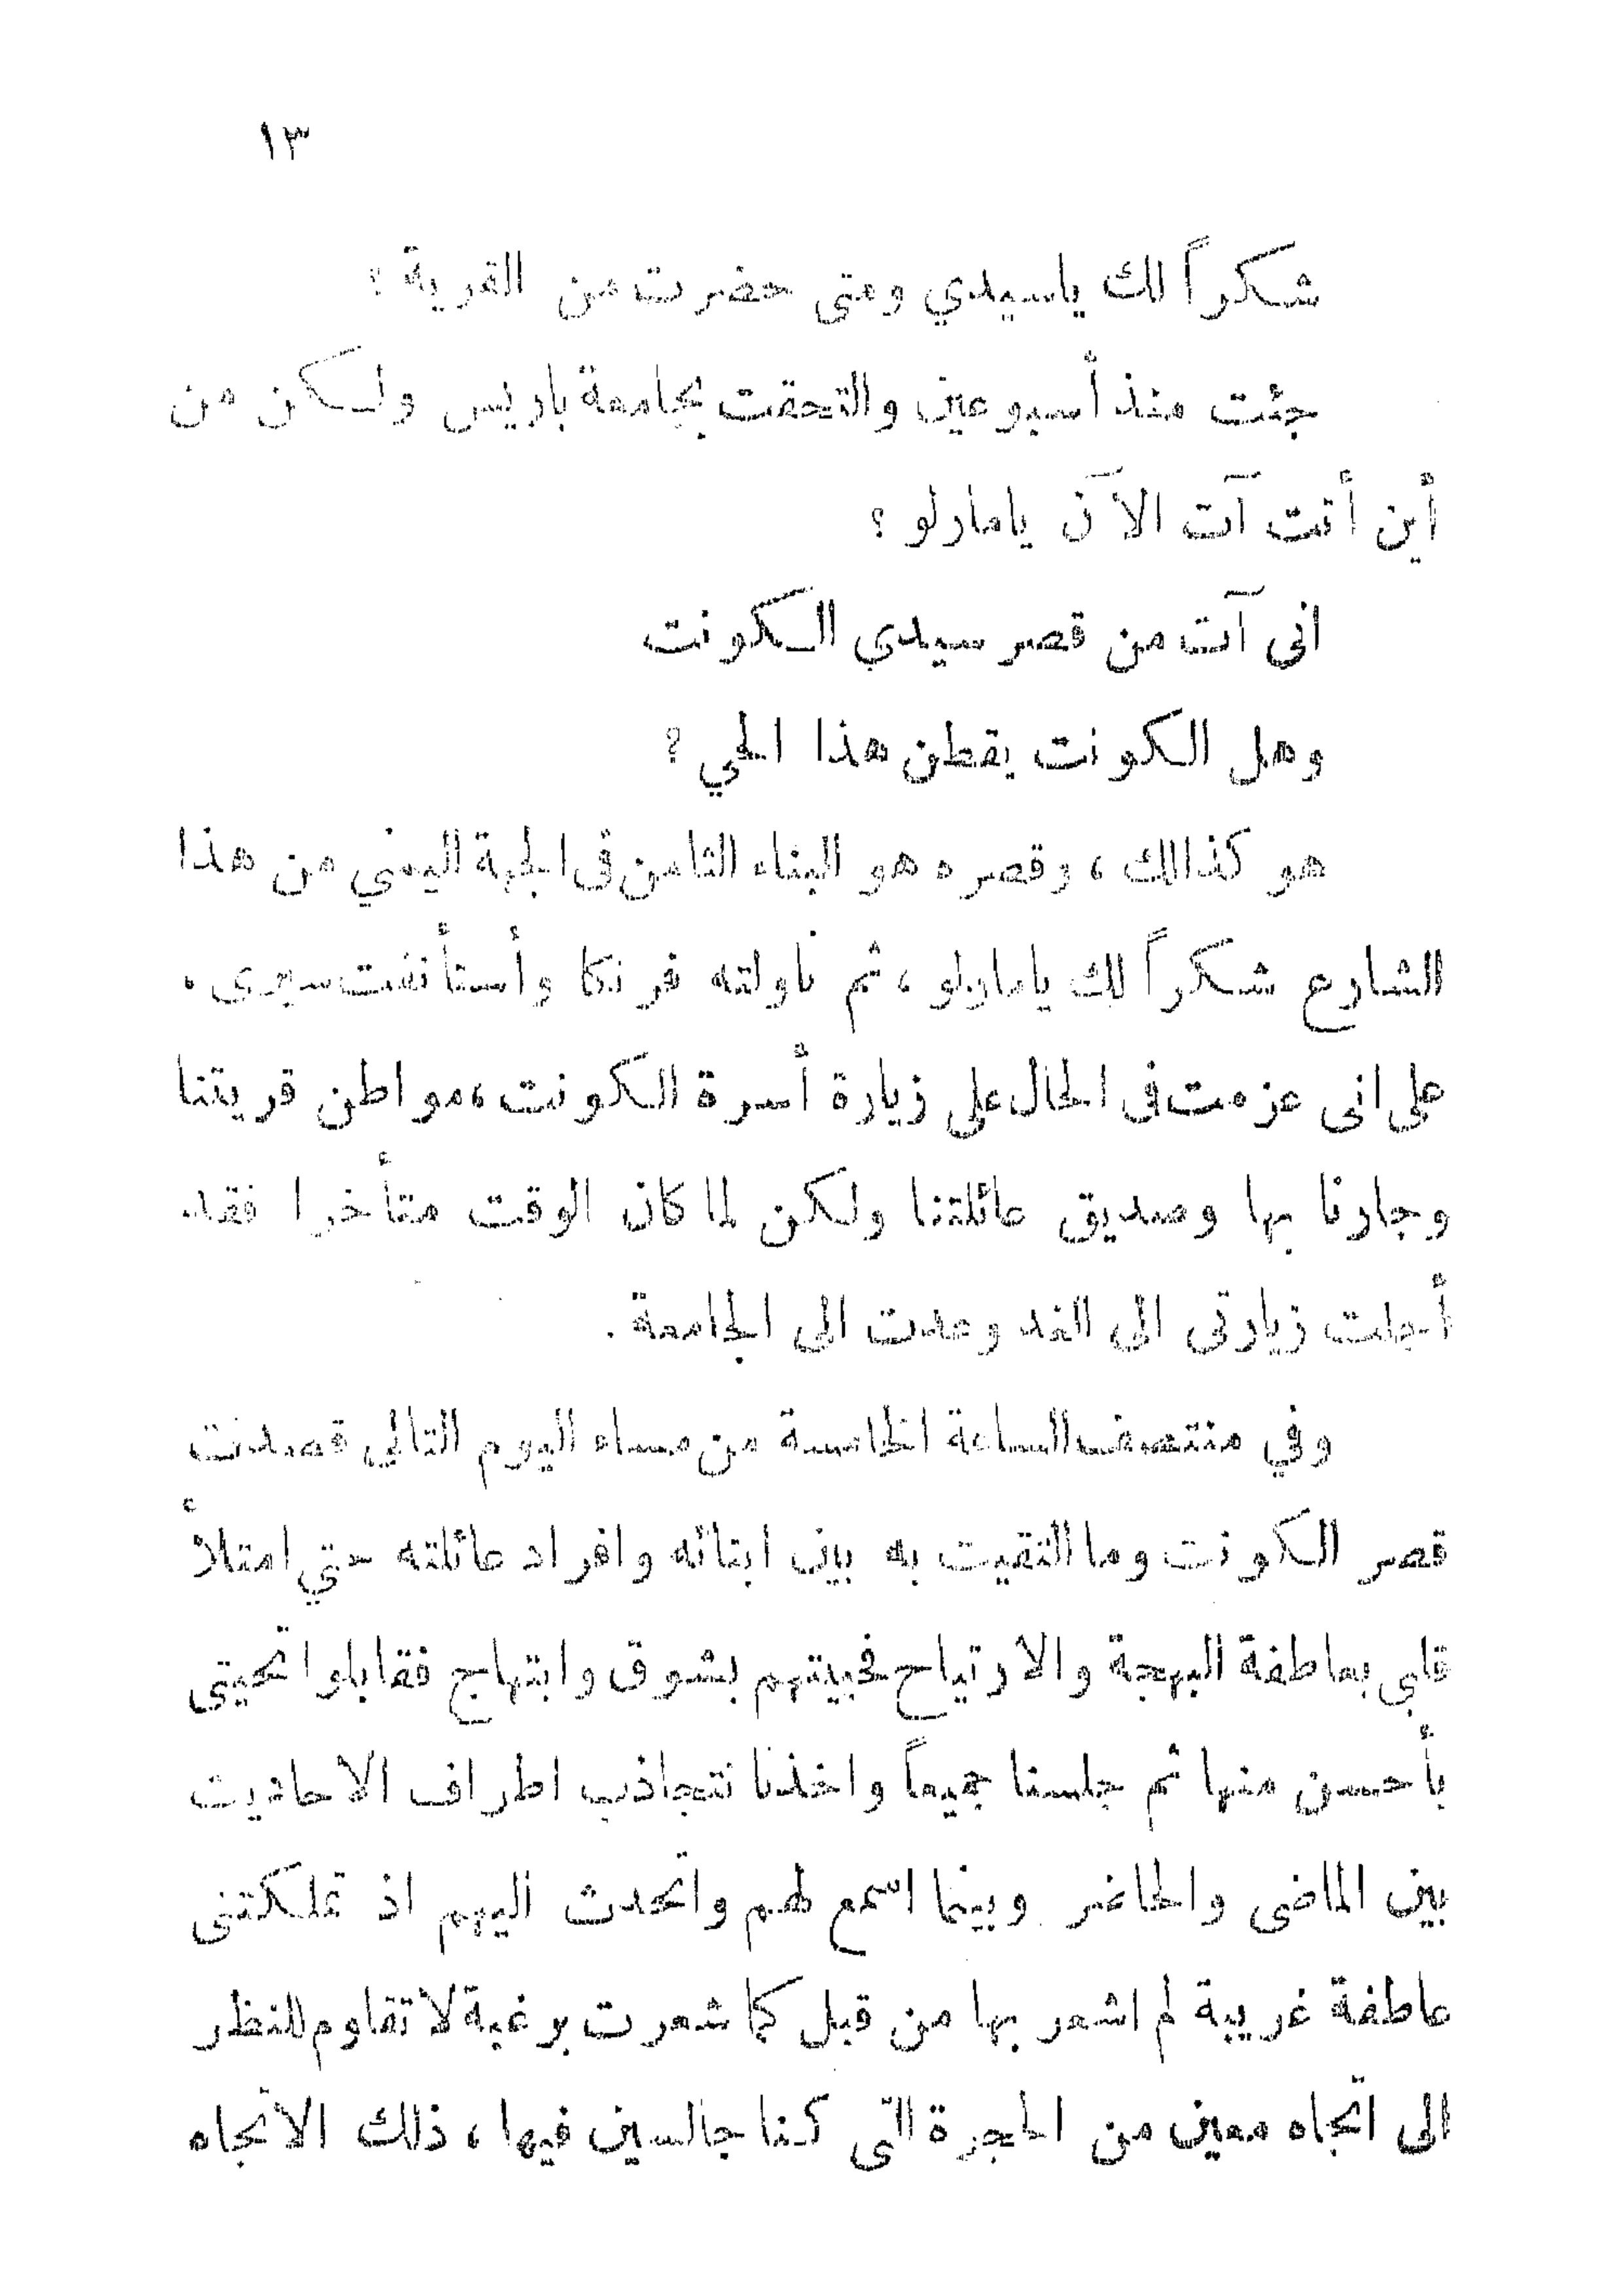 ١٣
شكراً لك ياسيدي ومتى حضرت من القرية ؟
جئت منذ أسبوعين والتحقت بجامعة باريس ولكن من
أين أنت آت الآن يامارلو ؟
انى آت من قصر سيدي الكونت
وهل الكونت يقطن هذا الحي ؟
هو كذالك ، وقصره هو البناء الثامن فى الجهة اليمني من هذا
الشارع شكراً لك يامارلو ، ثم ناولته فرنكا وأستأنفت سيرى .
على انى عزمت فى الحال على زيارة أسرة الكونت ، مواطن قريتنا
وجارنا بها وصديق عائلتنا ولكن لما كان الوقت متأخرا فقد
أجلت زيارتى الى الغد وعدت الى الجامعة .
وفي منتصف الساعة الخامسة من مساء اليوم التالي قصدت
قصر الكونت وما التقيت به بين ابنائه وافراد عائلته حتي امتلأ
قلبي بعاطفة البهجة والارتياح فحييتهم بشوق وابتهاج فقابلوا تحيتى
بأحسن منها ثم جلسنا جميعاً واخذنا نتجاذب اطراف الاحاديث
بين الماضى والحاضر وبينما اسمع لهم واتحدث اليهم اذ تملكتنى
عاطفة غريبة لم اشعر بها من قبل كما شعرت برغبة لا تقاوم للنظر
الى اتجاه معين من الحجرة التى كنا جالسين فيها ، ذلك الاتجاه